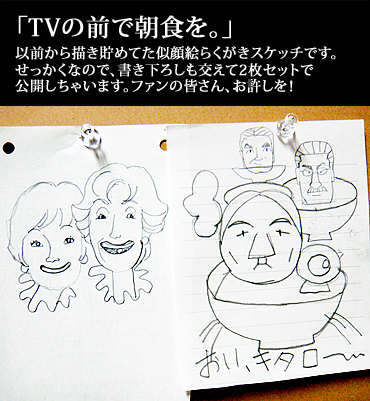 「TVの前で朝食を。」
以前から描き貯めてた似顔絵らくがきスケッチです。
せっかくなので、書き下ろしも交えて2枚セットで
公開しちゃいます。ファンの皆さん、お許しを!
おい、キタロー〜